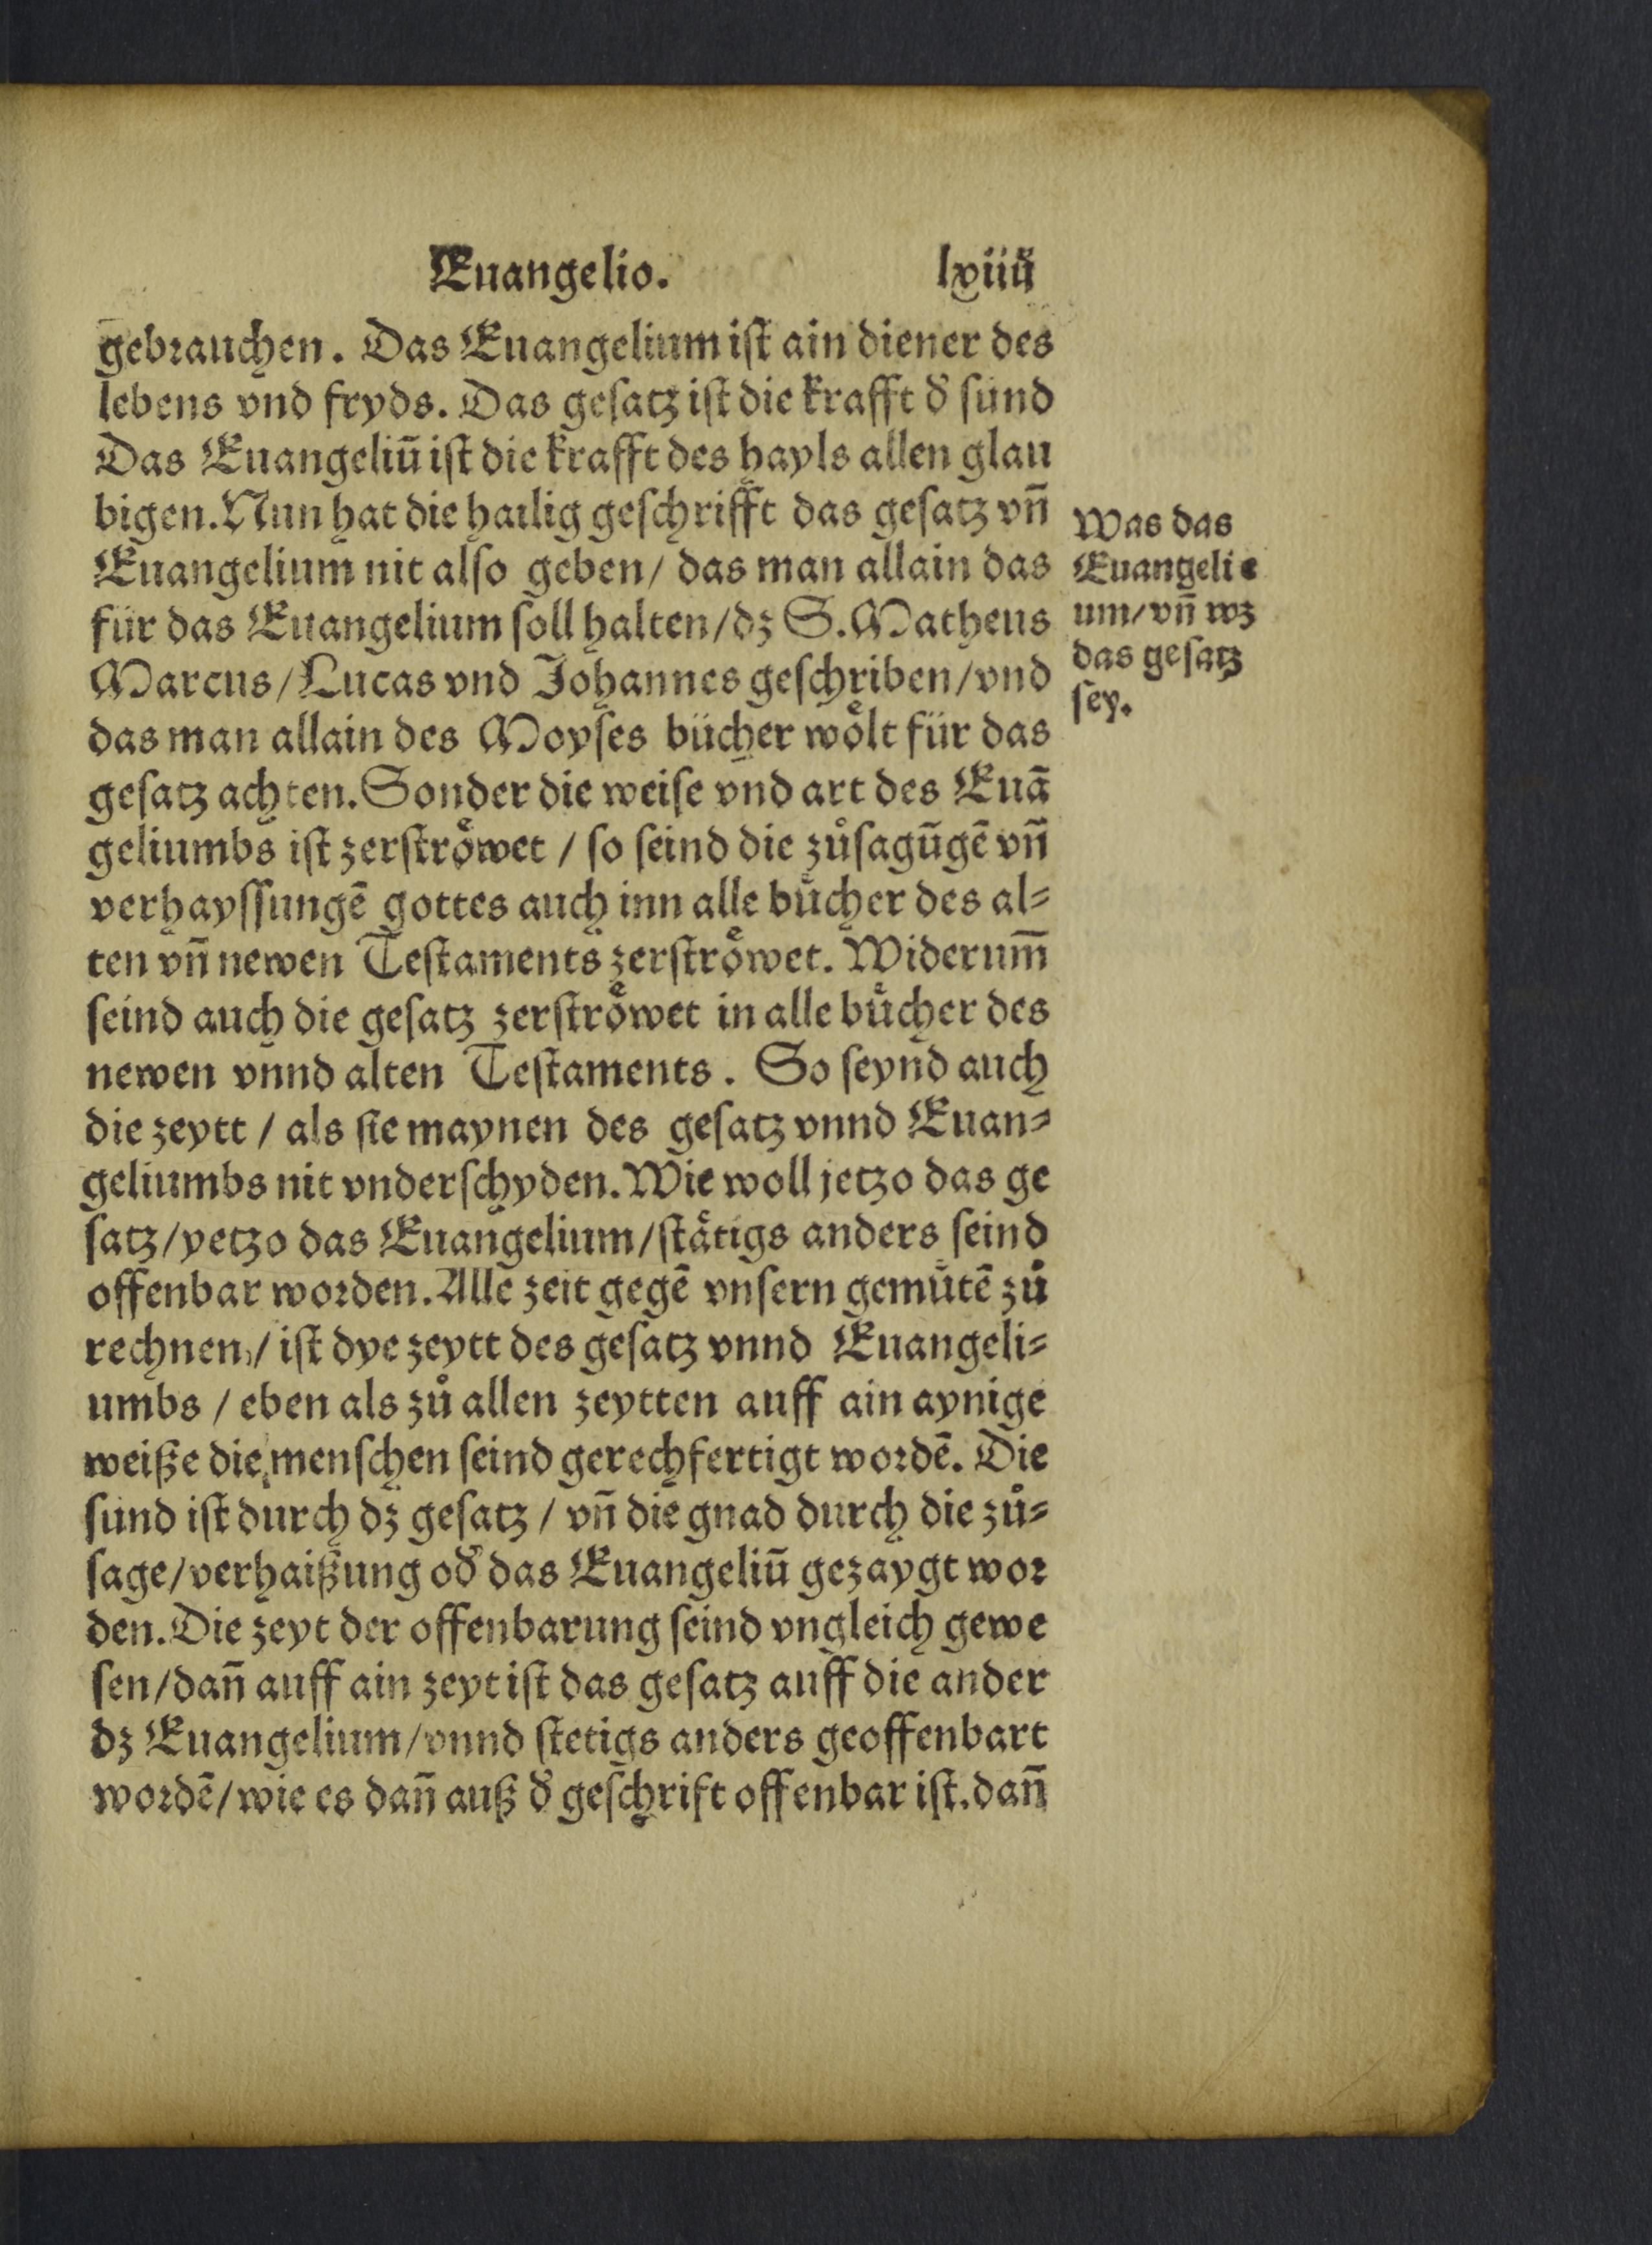 Euangelio.
lxiiij
gebꝛauchen. Das Euangelium iſt ain diener des
lebens vnd fryds. Das geſatz iſt die krafft d̕ ſünd
Das Euangeliū iſt die krafft des hayls allen glau
bigen. Nun hat die hailig geſchrifft das geſatz vn̄
Euangelium nit alſo geben/ das man allain das
für das Euangelium ſoll halten/dz S. Matheus
Marcus/Lucas vnd Johannes geſchriben/vnd
das man allain des Moyſes bücher woͤlt für das
geſatz achten. Sonder die weiſe vnd art des Euā
geliumbs iſt zerſtroͤwet / ſo ſeind die zůſagūgē vn̄
verhayſſungē gottes auch inn alle buͤcher des al⸗
ten vn̄ newen Teſtaments zerſtroͤwet. Widerum̄
ſeind auch die geſatz zerſtroͤwet in alle buͤcher des
newen vnnd alten Teſtaments. So ſeynd auch
die zeytt / als ſie maynen des geſatz vnnd Euan⸗
geliumbs nit vnderſchyden. Wie woll jetzo das ge
ſatz/yetzo das Euangelium/ſtaͤtigs anders ſeind
offenbar woꝛden. Alle zeit gegē vnſern gemuͤtē zů
rechnen/ iſt dye zeytt des geſatz vnnd Euangeli⸗
umbs / eben als zů allen zeytten auff ain aynige
weiße die menſchen ſeind gerechfertigt woꝛdē. Die
ſünd iſt durch dz geſatz / vn̄ die gnad durch die zů⸗
ſage/verhaißung od̕ das Euangeliū gezaygt woꝛ
den. Die zeyt der offenbarung ſeind vngleich gewe
ſen/dan̄ auff ain zeyt iſt das geſatz auff die ander
dz Euangelium/vnnd ſtetigs anders geoffenbart
woꝛdē/wie es dan̄ auß d̕ geſchrift offenbar iſt. dan̄
Was das
Euangeli⸗
um/vn̄ wz
das geſatz
ſey.